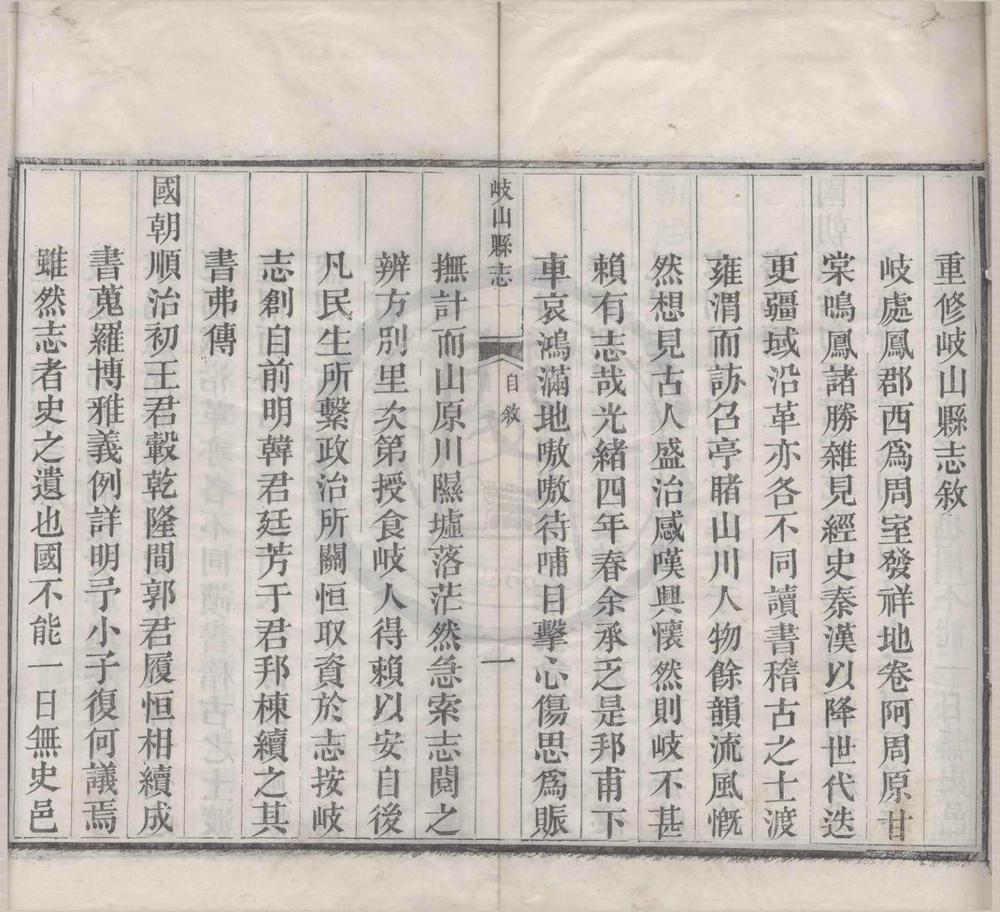 重修岐山縣志敘
岐處鳳郡西爲周室發祥地卷阿周原甘
棠鳴鳳諸勝雜見經史秦漢以降世代迭
更疆域沿革亦各不同讀書稽古之士渡
雍渭而訪召亭睹山川人物餘韻流風慨
然想見古人盛治感嘆興懷然則岐不甚
賴有志哉光緒四年春余承乏是邦甫下
車哀鴻滿地嗷嗷待哺目擊心傷思爲賑
岐山縣志
自敘
一
撫計而山原川隰墟落茫然急索志閱之
辨方別里次第授食岐人得賴以安自後
凡民生所繫政治所關恒取資於志按岐
志創自前明韓君廷芳于君邦棟續之其
書弗傳
國朝順治初王君轂乾隆間郭君履恒相續成
書蒐羅博雅義例詳明予小子復何議焉
雖然志者史之遺也國不能一日無史邑